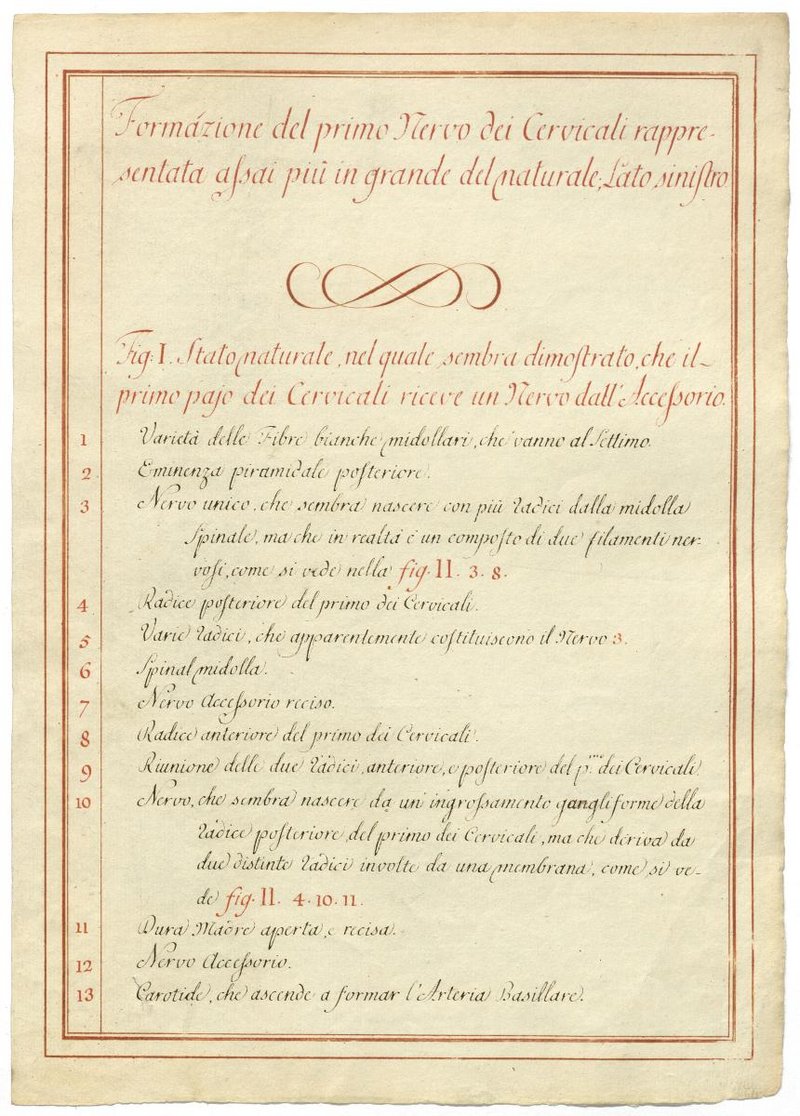 Formazione del primo Nervo dei Cervicali rappre-
sentata assai più in grande del naturale; Lato sinistro
Fig. I. Stato naturale, nel quale sembra dimostrato, che il
primo pajo dei Cervicali riceve un Nervo dall'Accessorio.
1 Varietà delle Fibre bianche midollari, che vanno al Settimo.
2 Eminenza piramidale posteriore.
3 Nervo unico, che sembra nascere con più radici dalla midolla
Spinale, ma che in realtà è un composto di due filamenti ner-
vosi, come si vede nella fig. II. 3. 8.
4 Radice posteriore del primo dei Cervicali.
5 Varie radici, che apparentemente costituiscono il Nervo 3.
6 Spinal midolla.
7 Nervo Accessorio reciso.
8 Radice anteriore del primo dei Cervicali.
9 Riunione delle due radici, anteriore, e posteriore del p.mo dei Cervicali.
10 Nervo, che sembra nascere da un ingrossamento gangliforme della
radice posteriore del primo dei Cervicali, ma che deriva da
due distinte radici involte da una membrana, come si ve-
de fig. II. 4. 10. 11.
11 Dura Madre aperta, e recisa.
12 Nervo Accessorio.
13 Carotide, che ascende a formar l'Arteria Basillare.